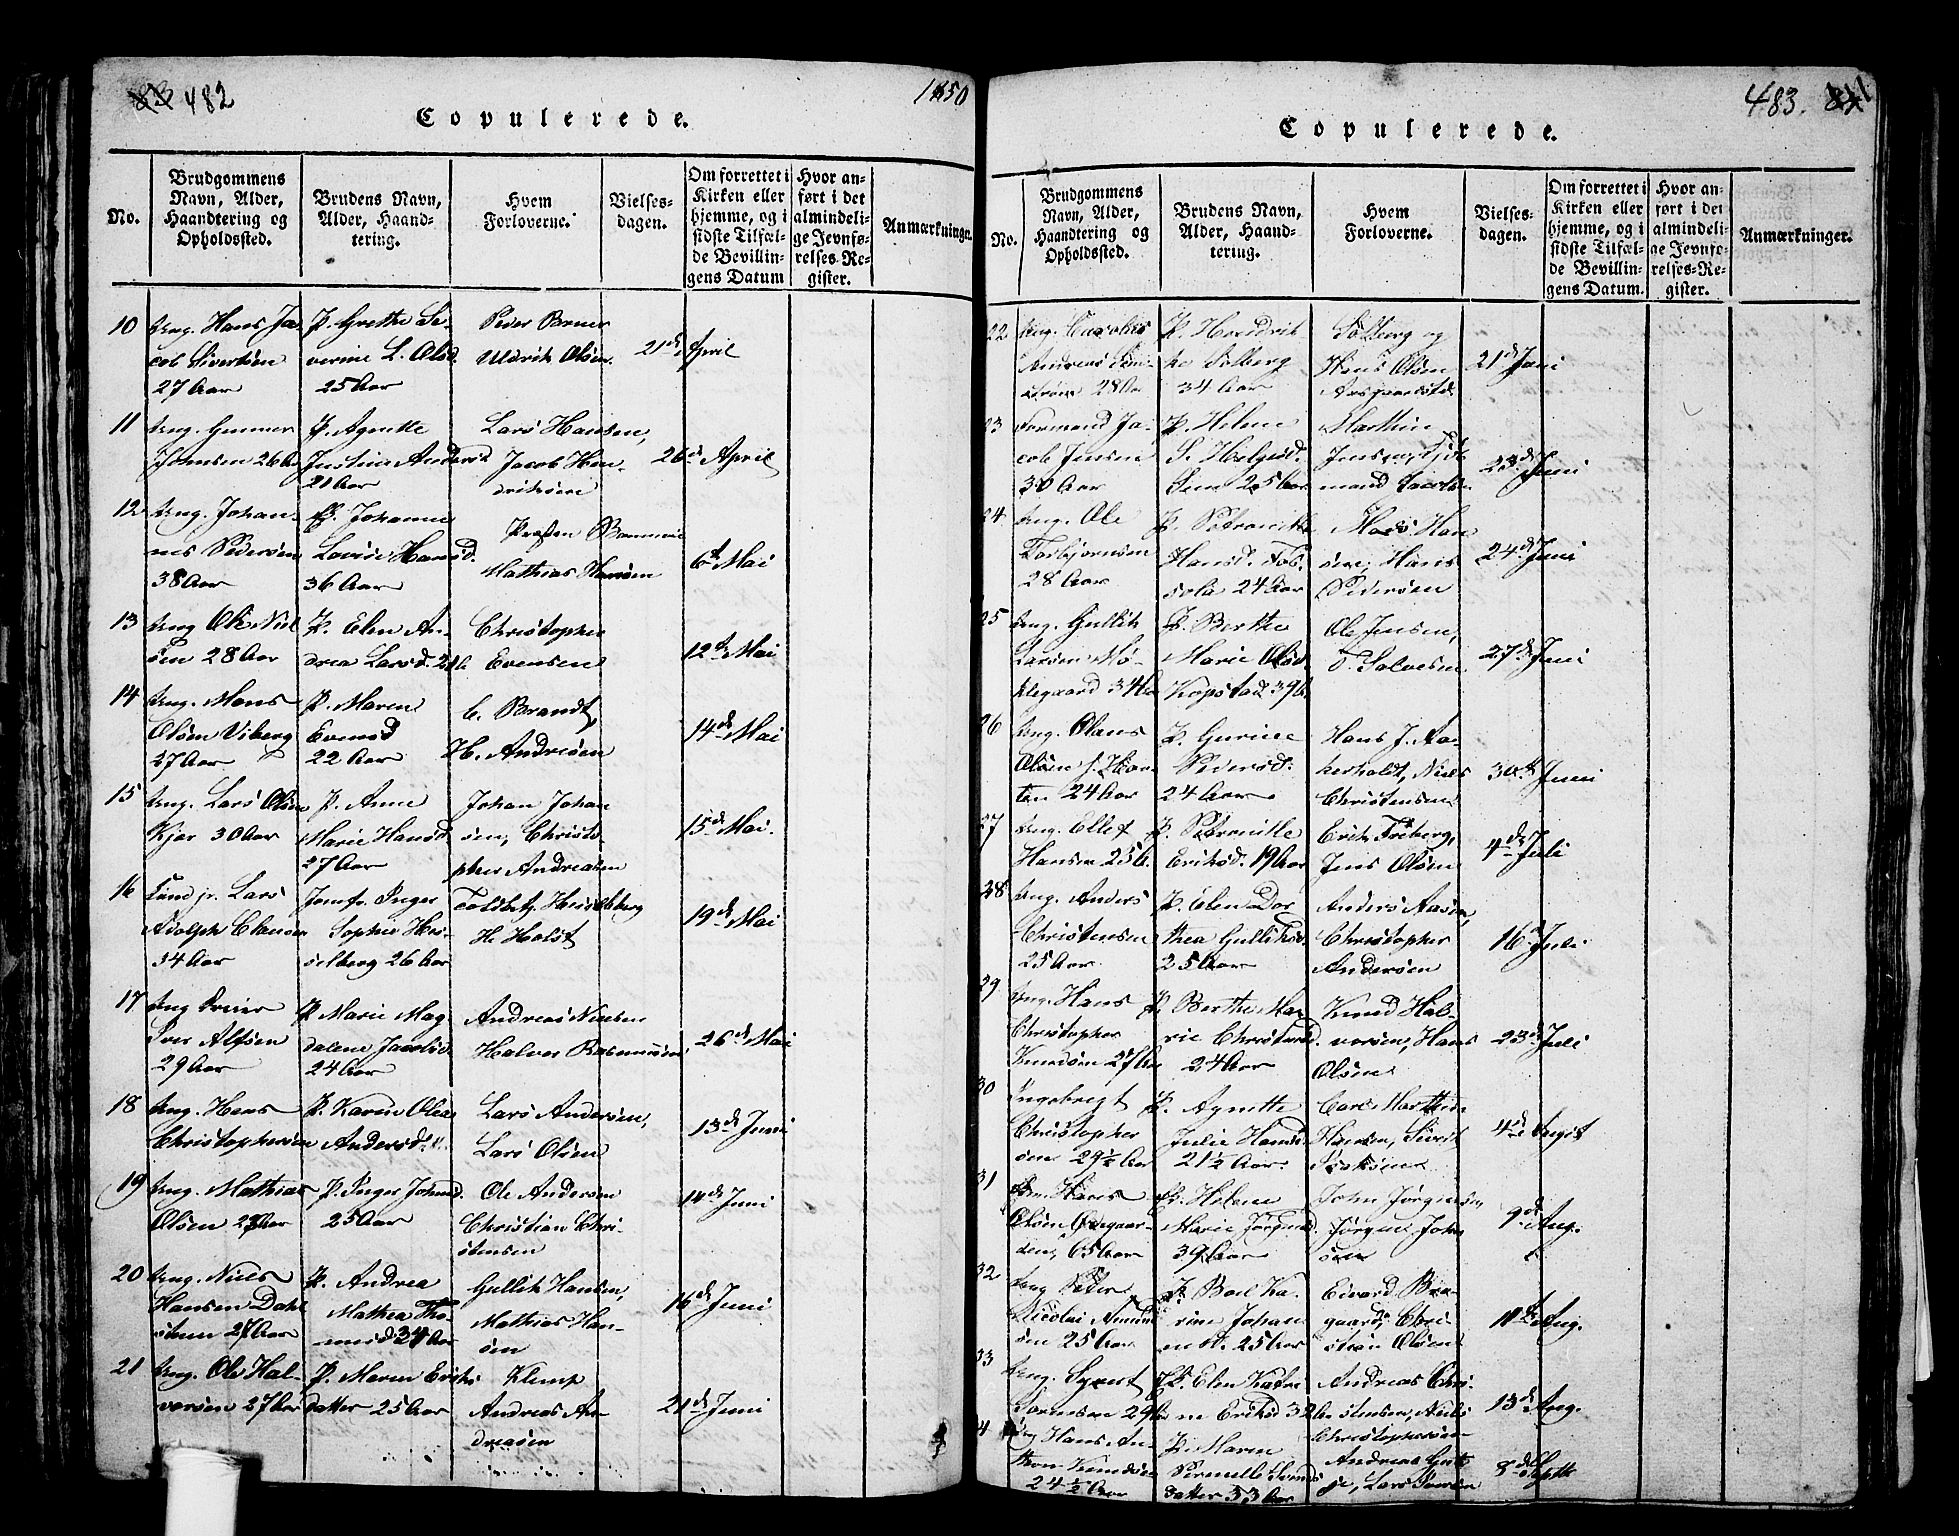 482
1850
Copulerede.
No.
Brudgommens Navn, Alder, Haandtering og Opholdssted.
Brudens Navn, Alder, Haandtering.
Hvem Forloverne.
Vielsesdagen.
Om forrettet i Kirken eller hjemme, og i sidste Tilfælde Bevillingens Datum
Hvor anført i det almindelige Jevnførelses-Register.
Anmærkninger.
10
Ung. Hans Ja-
cob Sivertsen
27 Aar
P. Grethe Se-
verine L. Olsd.
25 Aar
Peder
Uldrik Olsen
21de April
11
Ung. Gunner
Johnsen 26 Aar
P. Agnethe
Justine Andersd
21 Aar
Lars Hansen,
Jacob Hen-
driksen
26de April
12
Ung. Johan-
nes Pedersen
38 Aar
P. Johanne
Lovise Hansd.
36 Aar
Mathias Hansen
6te Mai
13
Ung Ole Niel
sen 28 Aar
P. Elen An-
drea Larsd. 21 A.
Christopher
Evensen
12te Mai
14
Ung. Mons
Olsen Viberg
27 Aar
P. Maren
Evensd
22 Aar
C. Brandt,
H. Andresen
14de Mai
15
Ung. Lars Olsen
Kjær 30 Aar
P. Anne
Marie Hansd.
27 Aar
Johan Johan
sen, Christo
pher Andreasen
15de Mai.
16
Lars
Adolph Clausen
34 Aar
Jomfr. Inger
Sophie Hes-
selberg 26 Aar
Heselberg
H. Holst
19de Mai
17
Ung
Iver Alfsen
29 Aar
P. Marie Mag
dalene Jacobsd.
24 Aar
Andreas Nielsen
Halvor Rasmussen
26de Mai
18
Ung. Hans
Christophersen
P. Karen Olea
Andersd.
Lars Andersen,
Lars Olsen
13de Juni
19
Ung. Mathias
Olsen 28 Aar
P. Inger Johnsd.
25 Aar
Ole Andersen
Christian Chri-
stensen
14de Juni
20
Ung. Niels
Hansen Dahl
27 Aar
P. Andrea
Mathea Tho-
34 Aar
Gullik Hansen,
Mathias Han-
sen
16de Juni
21
Ung. Ole Hal-
vorsen 27 Aar
P. Maren Eriks
datter 25 Aar
Klemp
Andreas An
dreasen
21de Juni
483.
Copulerede.
No.
Brudgommens Navn, Alder, Haandtering og Opholdssted.
Brudens Navn, Alder, Haandtering.
Hvem Forloverne.
Vielsesdagen.
Om forrettet i Kirken eller hjemme, og i sidste Tilfælde Bevillingens Datum.
Hvor anført i det almindelige Jevnførelses-Register.
Anmærkninger.
22
Ung. Carolus
Andreas
28 Aar
P. Hendrik
ke Solberg
34 Aar
Solberg og
Hans Olsen
21de Juni
23
Formand Ja-
cob Jensen
30 Aar
P. Helene
S. Helgesd.
Sem 25 Aar
Mathias
23de Juni
24
Ung. Ole
Torbjørnsen
28 Aar
P. Petronille
Hansd. Fos-
24 Aar
Mads Han
sen, Hans
Pedersen
24de Juni
25
Ung. Gullik
Larsen Mø-
klegaard 34 Aar
P. Berthe
Marie Olsd.
Kopstad 39 A.
Ole Jensen,
T. Salvesen
27de Juni
26
Ung. Olaus
Olsen f. Hor-
ten 24 Aar
P. Gurine
Pedersd.
24 Aar
Hans J. Aa-
kerholdt, Niels
Christensen
30te Juni
27
Ung. Ellef
Hansen 25 A.
P. Petronille
Eriksd. 19 Aar
Erik Freberg,
Jens Olsen
4de Juli
28
Ung. Anders
Christensen
25 Aar
P. Elen Dor
thea Gulliksd.
25 Aar
Anders Aasen,
Christopher
Andersen
16de Juli
29
Ung. Hans
Christopher
Knudsen 27 Aar
P. Berthe Ma-
rie Christensd.
24 Aar
Knud Hal-
vorsen, Hans
Olsen
23de Juli
30
Ingebregt
Christopher
sen 29½ Aar
P. Agnethe
Julie Hansd.
21½ Aar
Carl Marthin
Hansen, Sivert
4de Augst
31
Em. Hans
Olsen Ødegaar-
den, 65 Aar
P. Helene
Marie Jørgensd.
39 Aar
John Jørgensen,
Jørgen John
sen
9de Aug.
32
Ung Peder
Nicolai Amund
sen 25 Aar
P. Boel Ka-
rine Johan
25 Aar
Edvard Bre-
gaard, Chri-
stian Olsen
11te Aug.
33
Ung. Syvert
Sørensen 29 Aar
P. Elen Katri
ne Eriksd 32 Aar
Andreas Chri-
stensen, Niels
Christophersen
13de Aug.
34
Ung Hans An-
thon Knudsen
24½ Aar
P. Maren
Pernelle Svends
datter 33 Aar
Andreas
Lars Iversen
8de Septb